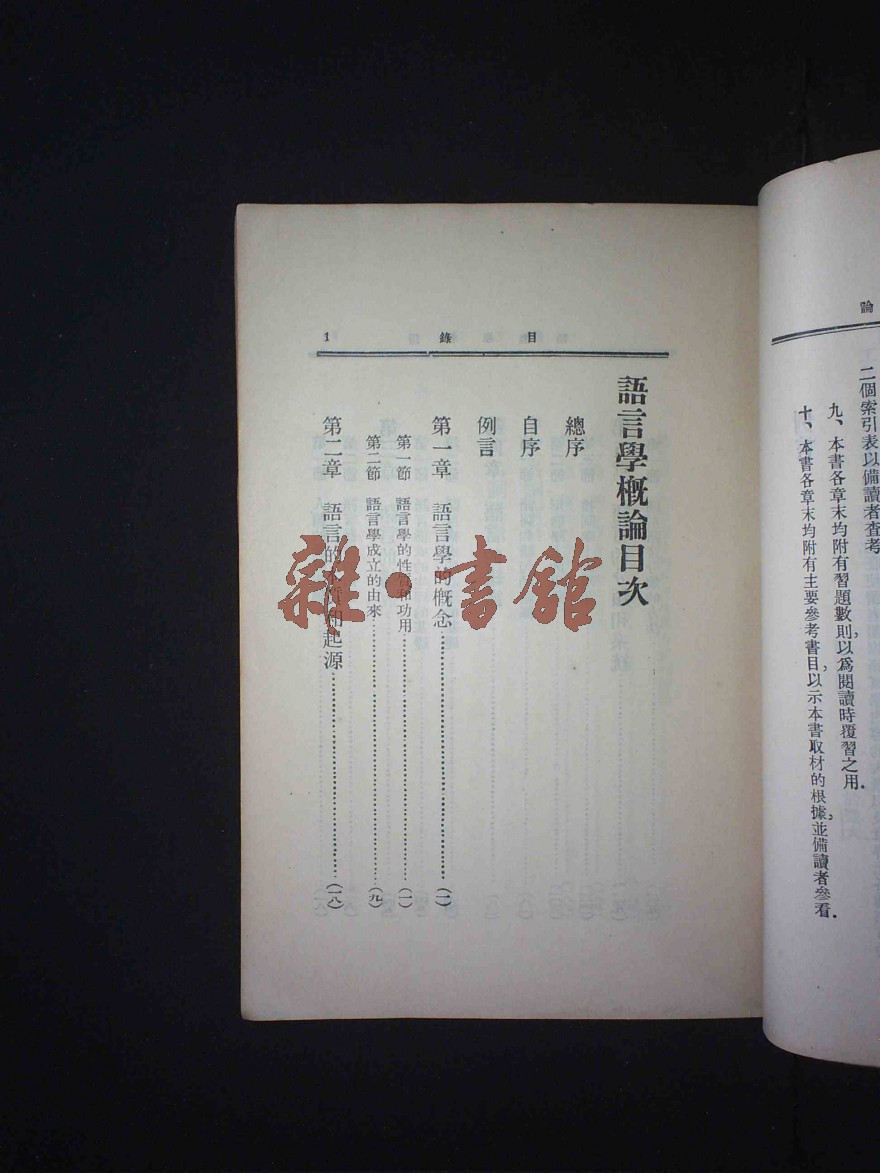 論
二個索引表以備讀者查考
九、本書各章末均附有習題數則,以爲閱讀時覆習之用.
十、本書各章末均附有主要參考書目,以示本書取材的根據,並備讀者參看.
目 錄 1
語言學槪論目次
總序
自序
例言
第一章 語言學的槪念……(一)
第一節 語言學的性質和功用……(一)
第二節 語言學成立的由來……(九)
第二章 語言的本質和起源……(一八)
雜·書館